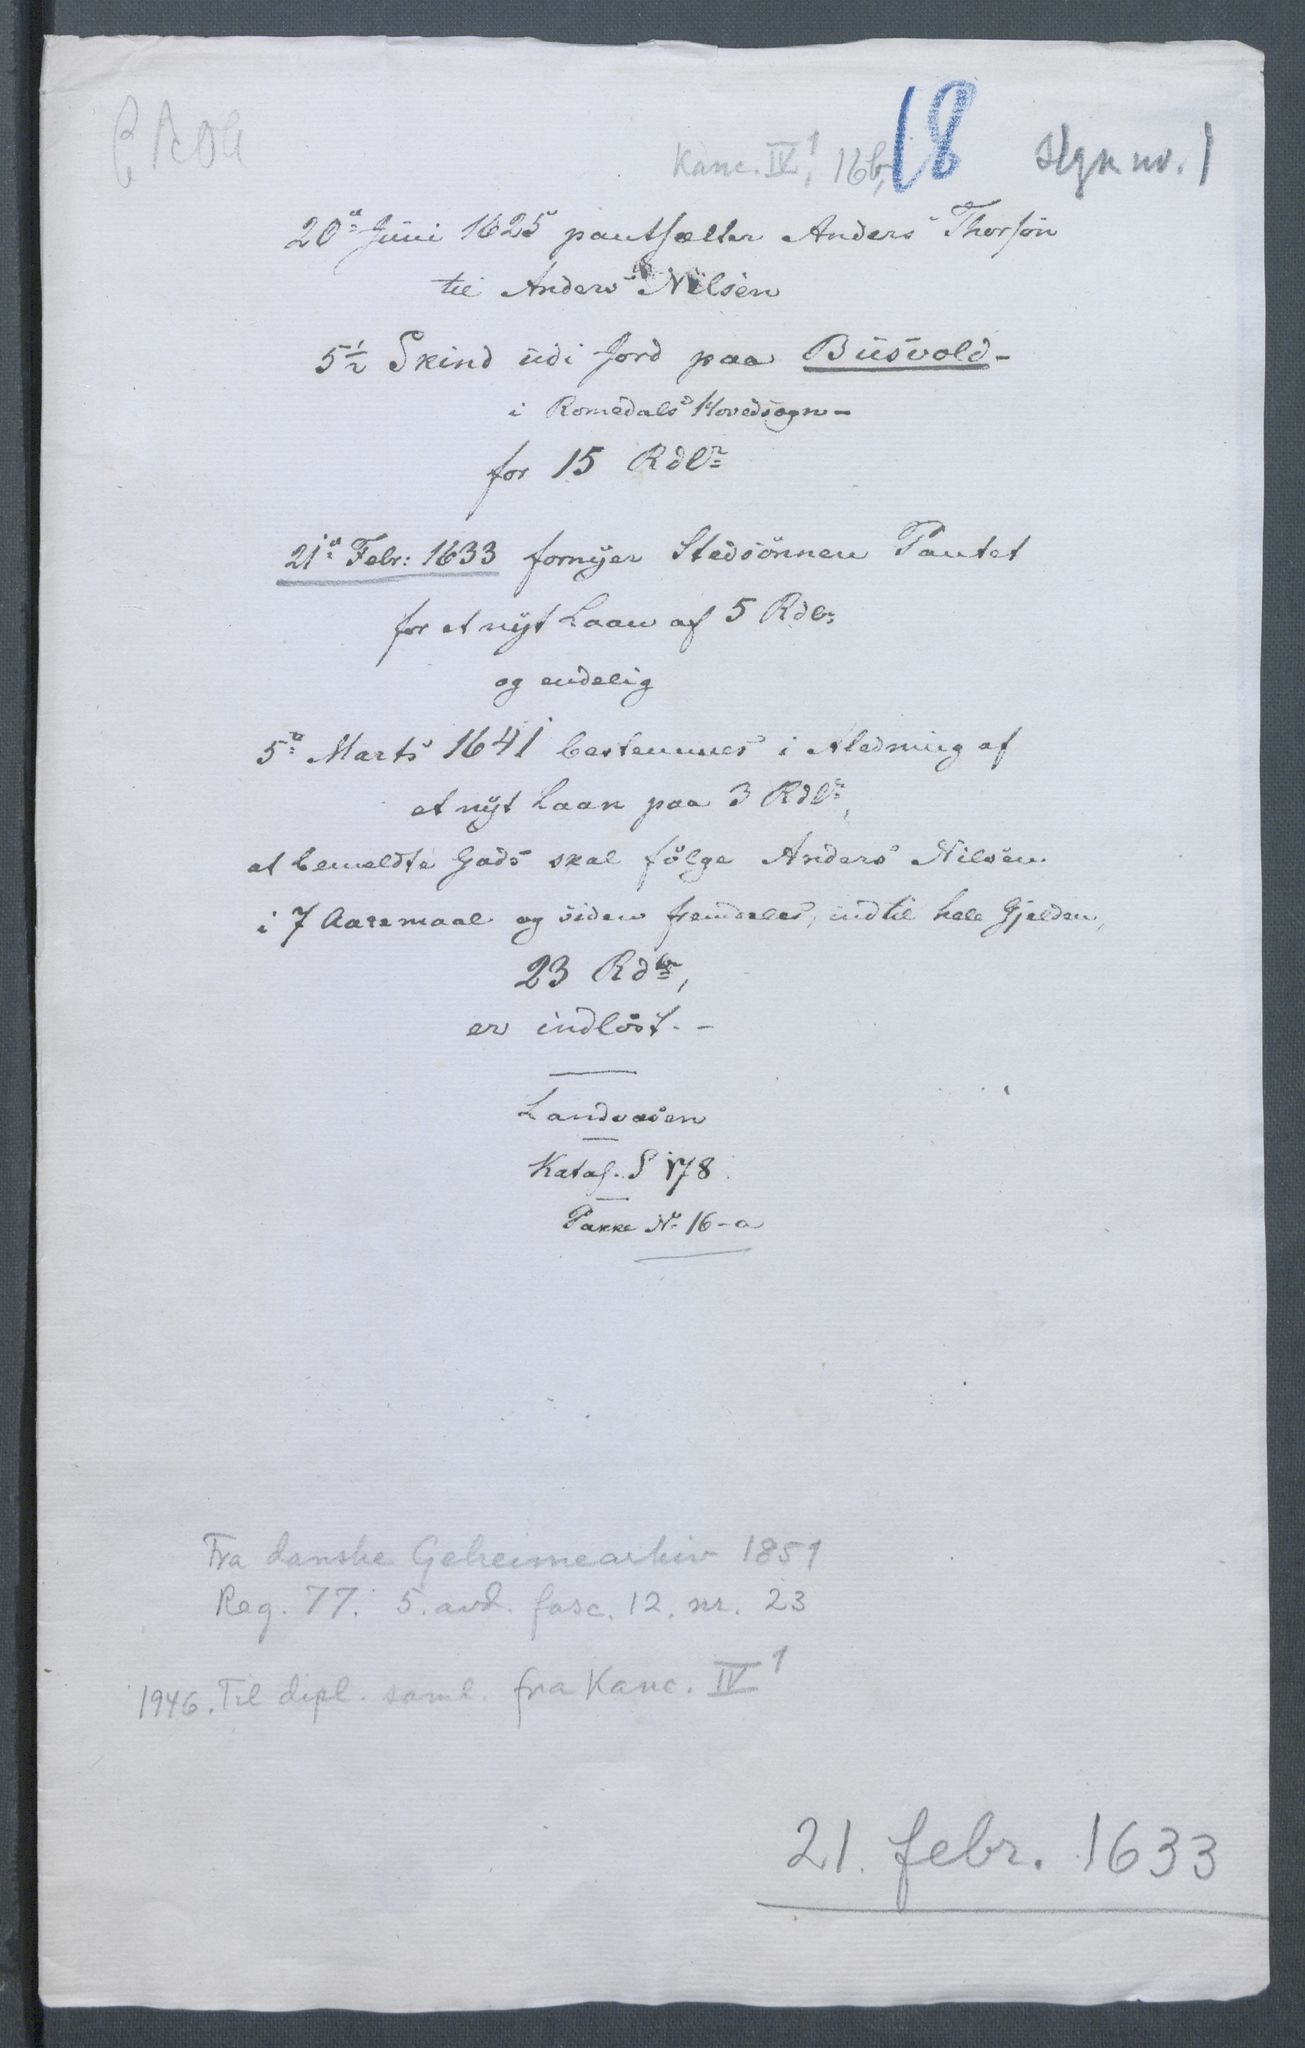 Kanc. IV¹, 16b,
18
sk. nr. 1
20ᵈᵉ Juni 1625 pantsætter Anders Thorsøn
til Anders Nilsen
5½ Skind udi Jord paa Biisvold -
i Romedals Hovedsogn -
for 15 Rdlr
21ᵈᵉ Febr: 1633 fornÿer Stedsönnen Pantet
for et nÿt Laan af 5 Rdlr
og endelig
5ᵈᵉ Marts 1641 bestemmes i Aledning af
et nÿt Laan paa 3 Rdlr,
at bemeldte Gods skal fölge Anders Nilsen
i 7 Aaremaal og siden fremdeles, indtil hele Gjelden,
23 Rdlr,
er indlöst. -
Landvæsen
Katal. S 178.
Pakke No 16-a
Fra danske Geheimearkiv 1851
Reg. 77. 5. avd. fasc. 12. nr. 23
1946. Til dipl. saml. fra Kanc. IV¹
21. febr. 1633